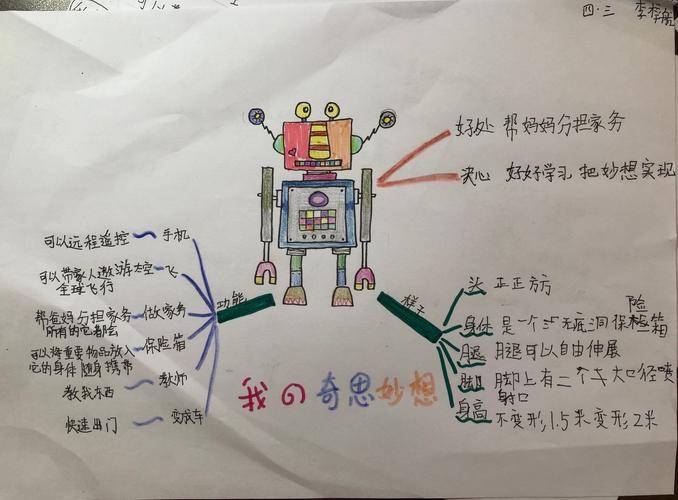 四·三 李
好处 帮妈妈分担家务
决心 好好学习 把妙想实现
功能
可以远程遥控 手机
可以带家人遨游太空 飞
全球飞行
帮爸妈分担家务 做家务
所有的它都会
可以将重要物品放入 保险箱
它的身体 随身携带
教我东西 教师
快速出门 变成车
样子
头 正正方方
身体 是一个 无底洞 保险箱
腿 腿可以自由伸展
脚 脚上有二个 大口径喷
射口
身高 不变形1.5米变形2米
我の奇思妙想